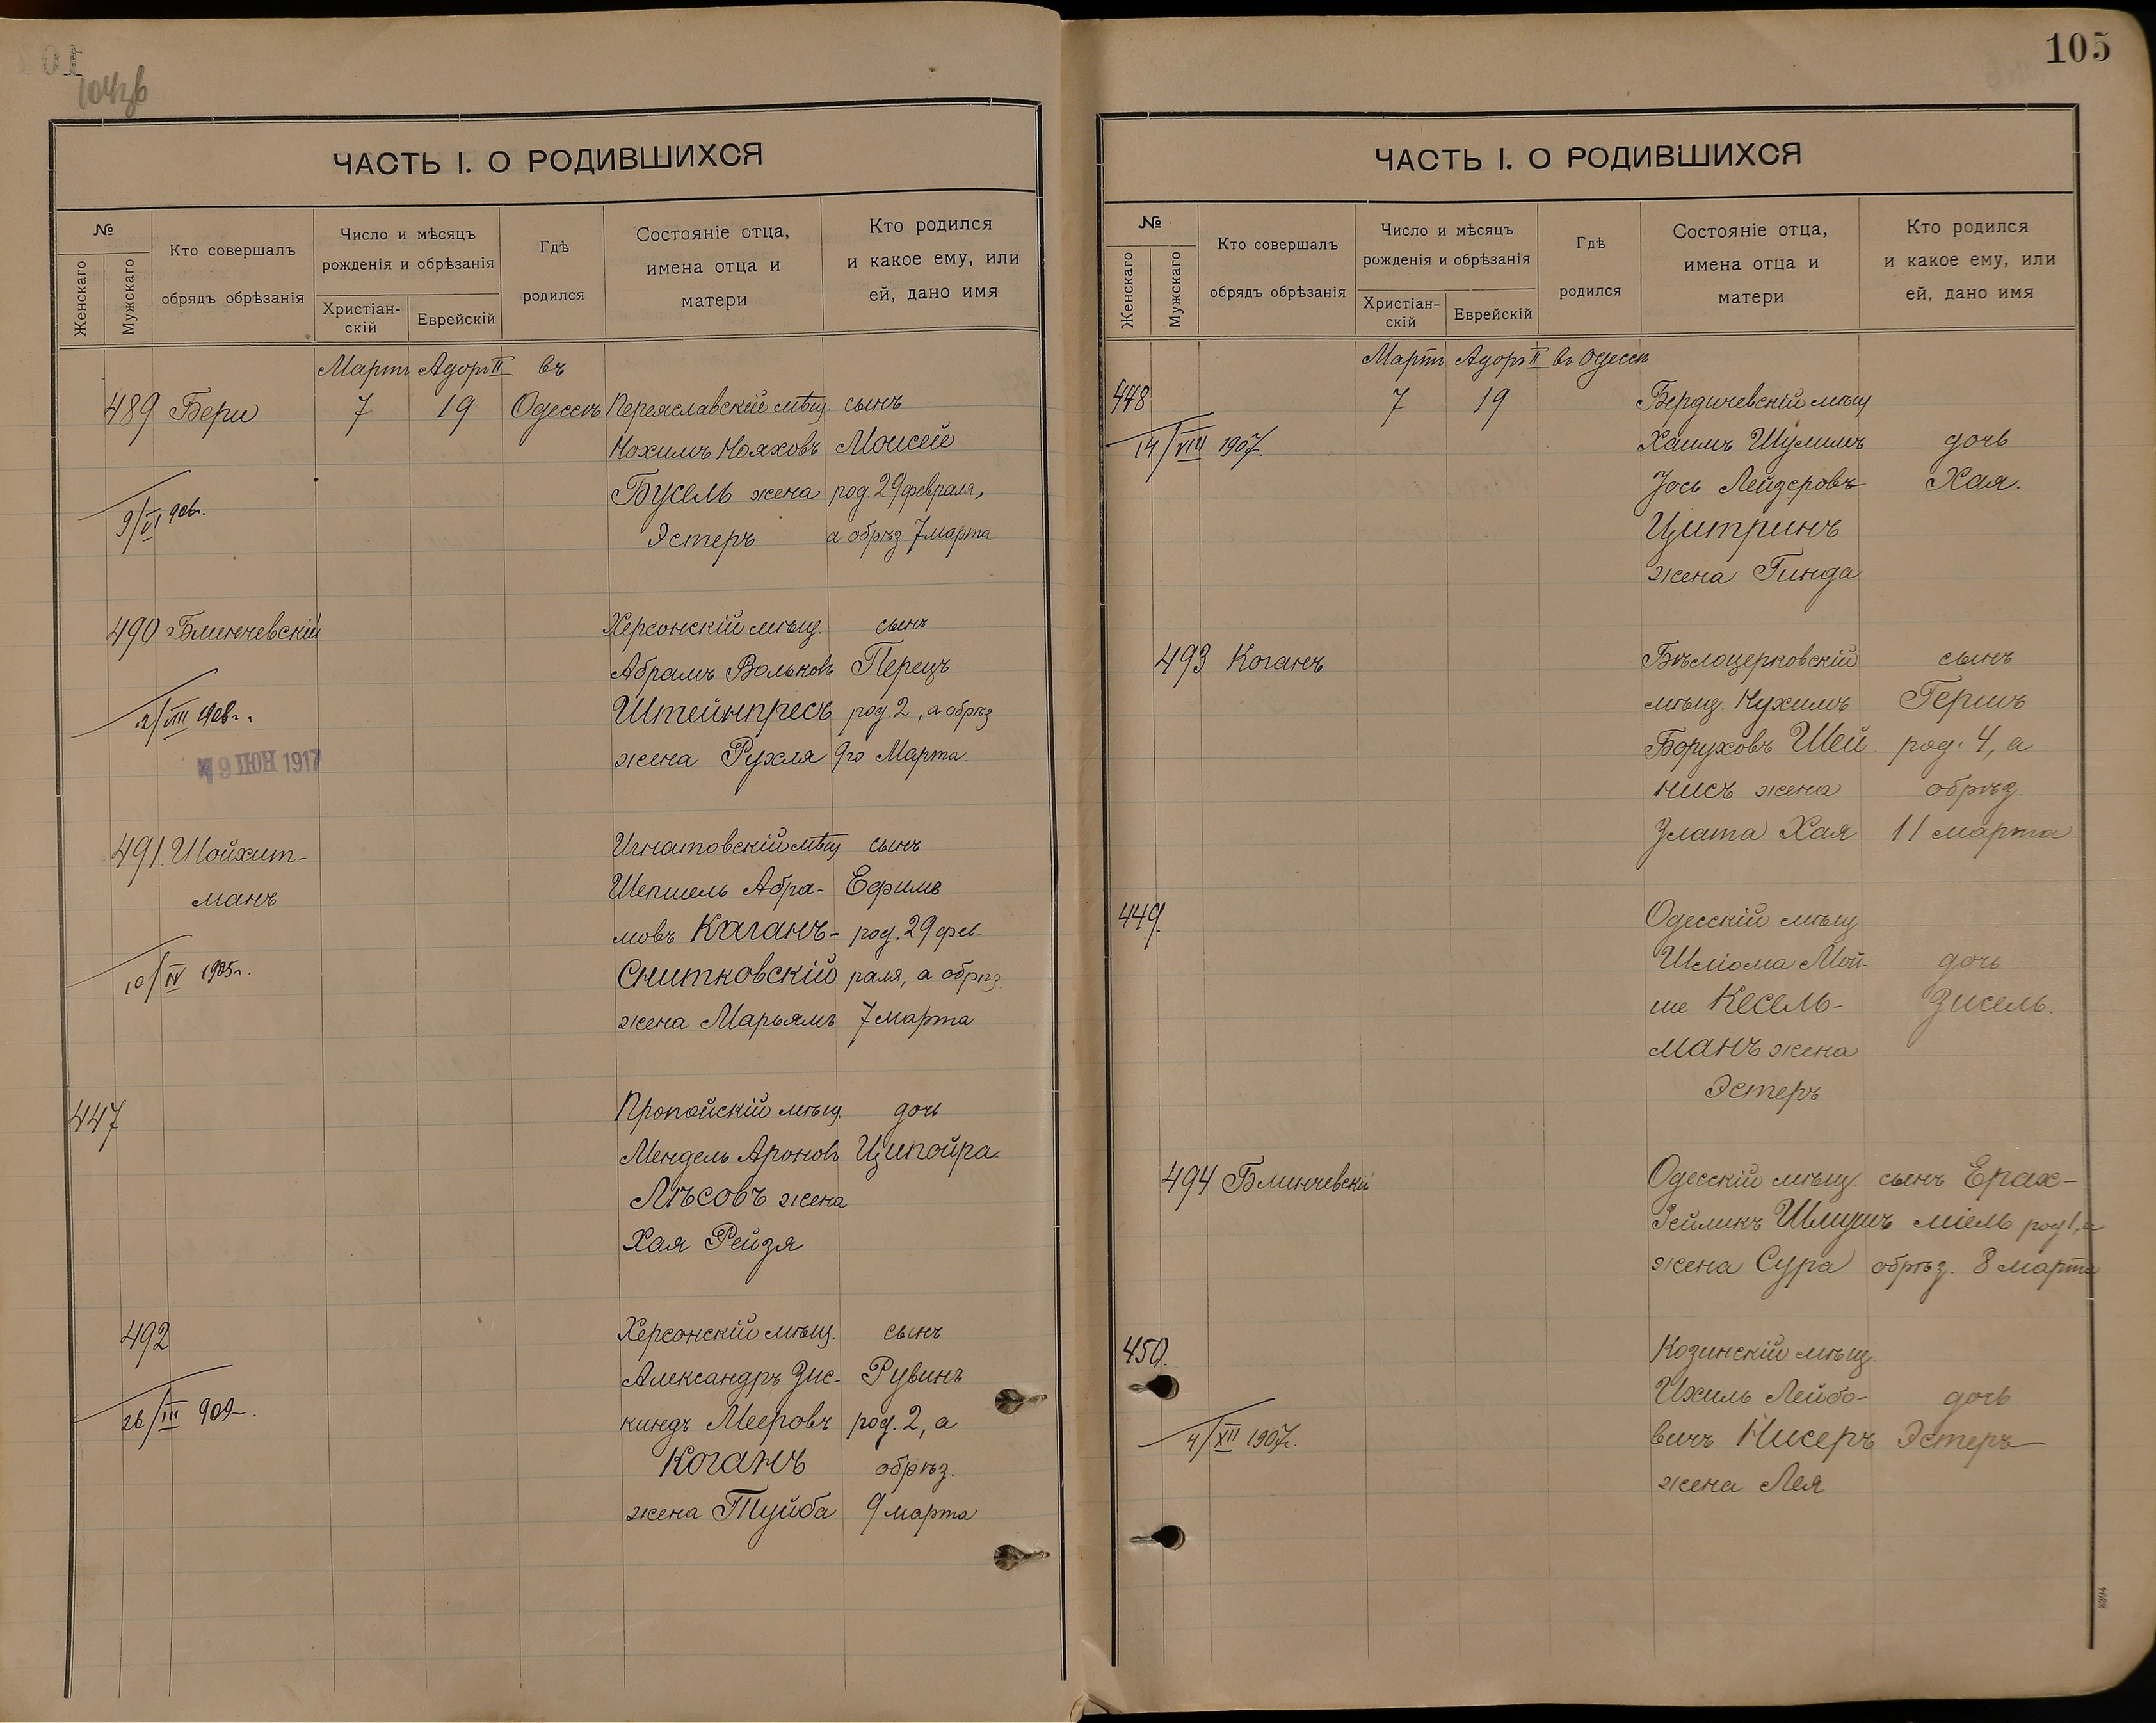 104 зв
ЧАСТЬ I. О РОДИВШИХСЯ
№
Женскаго
Мужскаго
Кто совершалъ
обрядъ обрѣзанія
Число и мѣсяцъ
рожденія и обрѣзанія
Христіан-
скій
Еврейскій
Гдѣ
родился
Состояніе отца,
имена отца и
матери
Кто родился
и какое ему, или
ей, дано имя
Мартъ Адоръ II въ
489 Бери 7 19 Одессѣ Переяславскій мѣщ. сынъ
Нохимъ Нояховъ Моисей
Бусель жена род. 29 февраля,
Эстеръ а обрѣз. 7 марта
9/VI 906г.
490 Блинчевскій Херсонскій мѣщ. сынъ
Абрамъ Вольковъ Перецъ
Штейнпресъ род. 2, а обрѣз
жена Рухля 9го Марта.
2/VIII 908г.
9 ІЮН 1917
491 Шойхит- Игнатовскій мѣщ сынъ
манъ Шепшель Абра- Ефимъ
мовъ Каганъ- род. 29 фев
Снитковскій раля, а обрѣз.
жена Марьямъ 7 марта
10/IV 1905г.
447 Пропойскій мѣщ. дочь
Мендель Ароновъ Ципойра
Лѣсовъ жена
Хая Рейзя
492 Херсонскій мѣщ. сынъ
Александръ Зис- Рувинъ
киндъ Мееровъ род. 2, а
Коганъ обрѣз.
жена Туйба 9 марта
26/III 909г.
105
ЧАСТЬ I. О РОДИВШИХСЯ
№
Женскаго
Мужскаго
Кто совершалъ
обрядъ обрѣзанія
Число и мѣсяцъ
рожденія и обрѣзанія
Христіан-
скій
Еврейскій
Гдѣ
родился
Состояніе отца,
имена отца и
матери
Кто родился
и какое ему, или
ей, дано имя
Мартъ Адоръ II въ Одессѣ
448 7 19 Бердичевскій мѣщ
Хаимъ Шулимъ дочь
Іось Лейзеровъ Хая.
Цитринъ
жена Гинда
14/VIII 1907.
493 Коганъ Бѣлоцерковскій сынъ
мѣщ. Нухимъ Гершъ
Боруховъ Шей род. 4, а
нисъ жена обрѣз.
Злата Хая 11 марта
449. Одесскій мѣщ
Шліома Мой- дочь
ше Кесель- Зисель.
манъ жена
Эстеръ
494 Блинчевскій Одесскій мѣщ. сынъ Ерах-
Зейликъ Шмушъ міель род 1, а
жена Сура обрѣз. 8 марта
450. Козинскій мѣщ.
Ихиль Лейбо- дочь
вичъ Нисеръ Эстеръ
жена Лея
4/XII 1907г.
8394